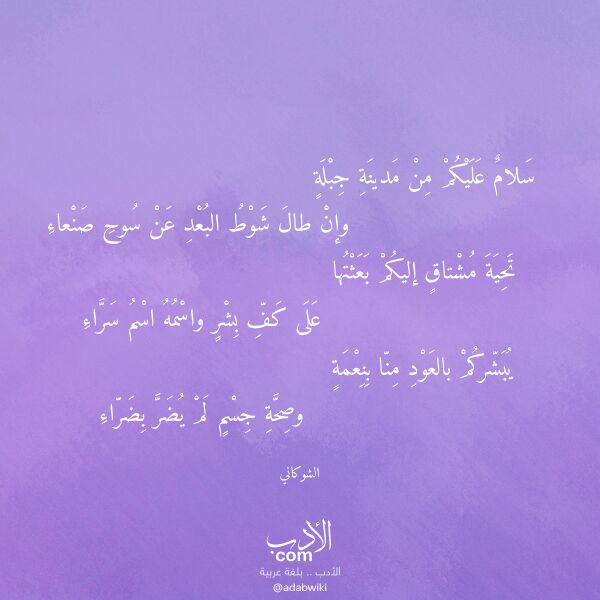 سَلامٌ عَلَيْكُمْ مِنْ مَدينَةِ جِبْلَةٍ
وإنْ طالَ شَوْطُ البُعْدِ عَنْ سُوحِ صَنْعاءِ
تَحِيَةَ مُشْتاقٍ إليكُمْ بَعَثْتُها
عَلَى كَفِّ بِشْرٍ واسْمُهُ اسْمُ سَرَّاءِ
يُبَشّركُمْ بالعَوْدِ مِنّا بِنِعْمَةٍ
وصِحَّةِ جِسْمٍ لَمْ يُضَرَّ بِضَرّاءِ
الشوكاني
الأدب
com
الأدب .. بلغة عربية
@adabwiki